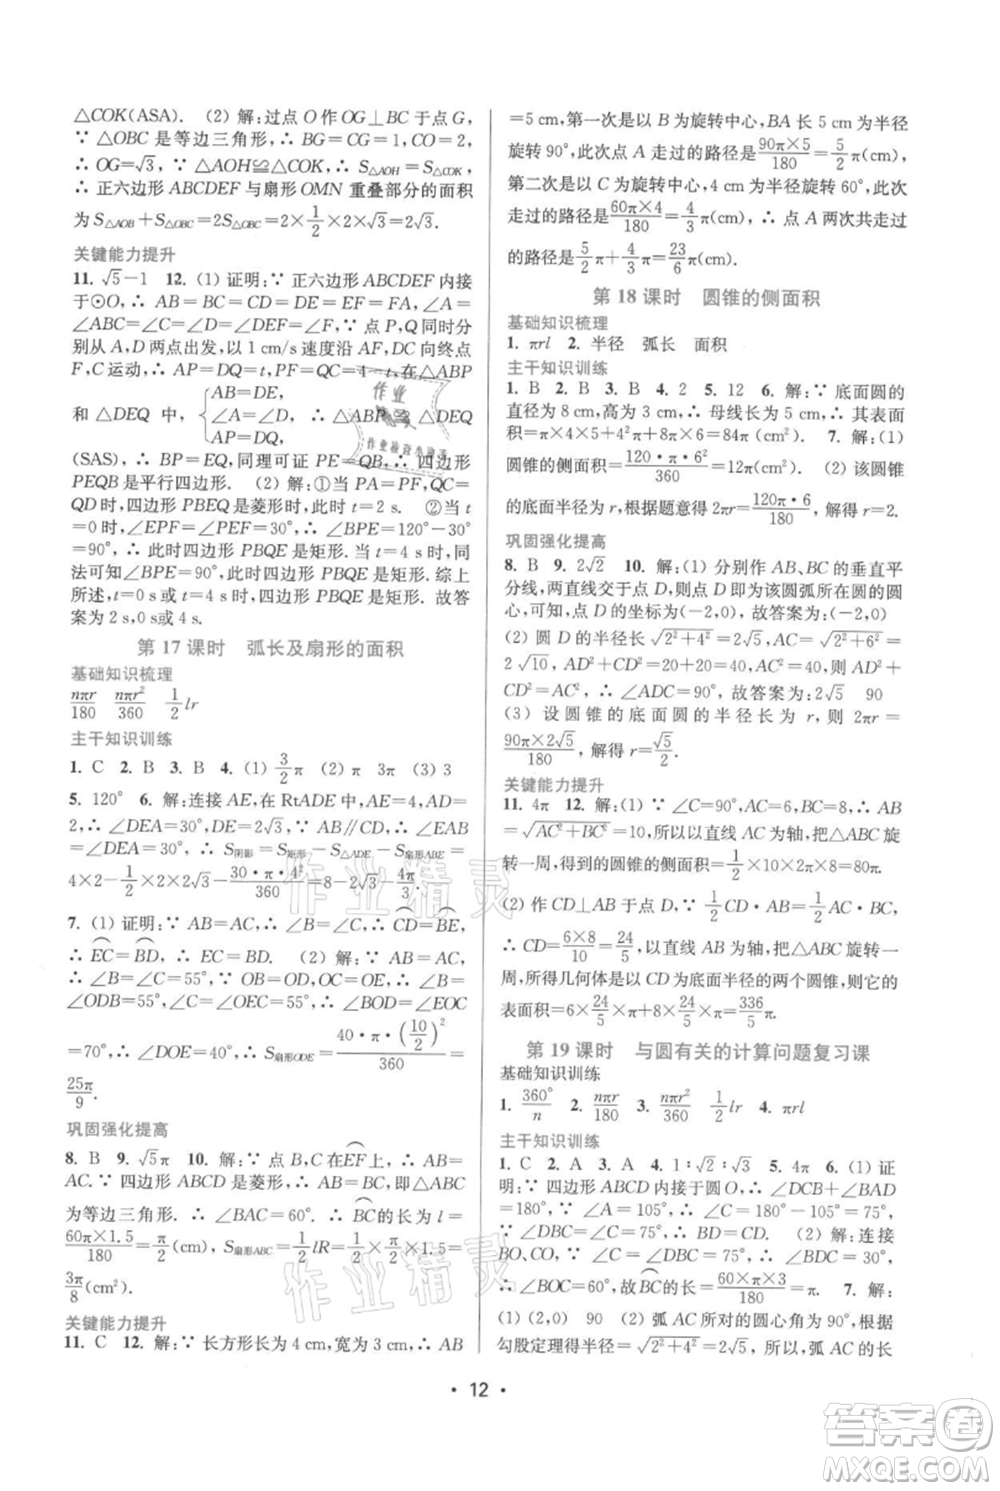 △COK(ASA).　(2) 解:过点 O 作 OG⊥BC 于点 G,
∵ △OBC 是等边三角形,∴ BG=CG,CO=2,
∴ OG=√3. ∵ △AOH≌△COK,∴ S△AOH=S△COK.
∴ 正六边形 ABCDEF 与扇形 OMN 重叠部分的面积
为 S△AOB+S△OBC=2S△OBC=2×1/2×2×√3=2√3.
关键能力提升
11. √5-1　12. (1) 证明:∵ 正六边形 ABCDEF 内接
于⊙O,∴ AB=BC=CD=DE=EF=FA,∠A=
∠ABC=∠C=∠D=∠DEF=∠F. ∵ 点 P,Q 同时分别从
A,D 两点出发,以 1 cm/s 速度沿 AF,DC 向终点
F,C 运动,∴ AP=DQ=t,PF=QC=4-t,在△ABP
和 △DEQ 中,{AB=DE,
∠A=∠D,
AP=DQ,
∴ △ABP≌△DEQ
(SAS),∴ BP=EQ,同理可证 PE=QB,∴ 四边形
PEQB 是平行四边形.　(2) 解:①当 PA=PF,QC=
QD时,四边形 PBEQ 是菱形时,此时 t=2 s.　②当 t
=0时,∠EPF=∠PEF=30°,∴ ∠BPE=120°-30°
=90°,∴ 此时四边形 PBQE 是矩形. 当 t=4 s 时,同
法可知∠BPE=90°,此时四边形 PBQE 是矩形. 综上
所述,t=0 s或4 s时,四边形 PBQE 是矩形. 故答
案为 2 s,0 s或 4 s.
第 17 课时　弧长及扇形的面积
基础知识梳理
nπr/180　nπr²/360　1/2 lr
主干知识训练
1. C　2. B　3. B　4. (1) 3/2 π　(2) π　3π　(3) 3
5. 120°　6. 解:连接 AE,在 Rt△ADE 中,AE=4,AD=
2,∴ ∠DEA=30°,DE=2√3,∵ AB∥CD,∴ ∠EAB
=∠DEA=30°,∴ S阴影=S矩形-S△ADE-S扇形ABE=
4×2-1/2×2×2√3-30·π·4²/360=8-2√3-4π/3.
7. (1) 证明:∵ AB=AC,∴ ∠B=∠C,∴ CD=BE,
∴ EC=BD,∴ EC=BD.　(2) 解:∵ ∠B=∠C=55°,
∴ ∠B=∠C=55°,∴ ∠B=∠C=55°,∴ ∠B=
∠ODB=55°,∠C=∠OEC=55°,∴ ∠BOD=∠EOC
=70°,∴ ∠DOE=40°,∴ S扇形ODE=40·π·(10/2)²/360=
25π/9.
巩固强化提高
8. B　9. √5π　10. 解:∵ 点 B,C 在EF上,∴ AB=
AC. ∵ 四边形 ABCD 是菱形,∴ AB=BC,即△ABC
为等边三角形. ∴ ∠BAC=60°. ∴ BC的长 l=
60π×1.5/180=π/2(cm),S扇形ABC=1/2 lR=1/2×π/2×1.5=
3π/8(cm²).
关键能力提升
11. C　12. 解:∵ 长方形长为 4 cm,宽为 3 cm,∴ AB
=5 cm,第一次是以 B 为旋转中心,BA 长 5 cm 为半径
旋转 90°,此次点 A 走过的路径是90π×5/180=5/2π(cm),
第二次是以 C 为旋转中心,4 cm 为半径旋转 60°,此次
走过的路径是60π×4/180=4/3π(cm),∴ 点 A 两次共走过的
路径是5/2π+4/3π=23/6π(cm).
第 18 课时　圆锥的侧面积
基础知识梳理
1. πrl　2. 半径　弧长　面积
主干知识训练
1. B　2. B　3. B　4. 2　5. 12　6. 解:∵ 底面圆的
直径为 8 cm,高为 3 cm,∴ 母线长为 5 cm,∴ 其表面
积=π×4×5+4²π+8π×6=84π(cm²).　7. 解:(1)
圆锥的侧面积=120·π·6²/360=12π(cm²).　(2) 该圆锥
的底面半径为 r,根据题意得 2πr=120π·6/180,解得 r=2.
巩固强化提高
8. B　9. 2√2　10. 解:(1) 分别作 AB,BC 的垂直平
分线,两直线交于点 D,则点 D 即为该圆弧所在圆的圆
心,可知点 D 的坐标为(-2,0). 故答案为(-2,0)
(2) 圆 D 的半径长=√2²+4²=2√5,AC=√2²+6²=
2√10,∴ AD=CD=2√5,AC=2√10,∴ AD²+
CD²=AC²,∴ ∠ADC=90°,故答案为:2√5　90
(3) 设圆锥的底面圆的半径长为 r,则 2πr=
90π×2√5/180,解得 r=√5/2.
关键能力提升
11. 4π　12. 解:(1) ∵ ∠C=90°,AC=6,BC=8,∴ AB
=√AC²+BC²=10,所以以直线 AC 为轴,把△ABC 旋
转一周,得到的圆锥的侧面积=1/2×10×2π×8=80π.
(2) 作 CD⊥AB 于 D,如图,∵ 1/2 CD·AB=1/2 AC·BC,
∴ CD=6×8/10=24/5,以直线 AB 为轴,把△ABC 旋转一
周,所得几何体是以 CD 为底面半径的两个圆锥,则它的
表面积=6×24/5×π+8×24/5×π=336/5π.
第 19 课时　与圆有关的计算问题复习课
基础知识训练
1. 360°/n　2. nπr/180　3. nπr²/360　1/2 lr　4. πrl
主干知识训练
1. C　2. C　3. A　4. 1∶√2∶√3　5. 4π　6. (1) 证
明:∵ 四边形 ABCD 内接于圆 O,∴ ∠DCB+∠BAD
=180°,∵ ∠A=105°,∴ ∠C=180°-105°=75°.
∵ ∠DBC=75°,∴ ∠DBC=∠C=75°,∴ BD=CD.　(2) 解:连接
BO,CO,∵ ∠C=∠DBC=75°,∴ ∠BDC=30°,
∴ ∠BOC=60°,故BC的长=60×π×3/180=π.　7. 解:
(1) (2,0)　90　(2) 弧 AC 所对的圆心角为90°,根据
勾股定理得半径=√2²+4²=2√5,则弧 AC 的长=
• 12 •
作业
作业检查小助手
作业精灵
作业精灵
答案圈
MXQE.COM